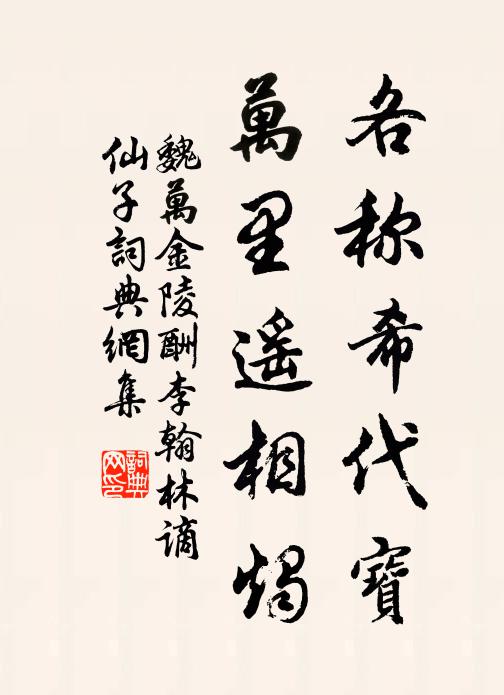 各称希代寶
萬里遥相燭
魏萬金陵酬李翰林謫
仙子詞典網集
詞典
网印